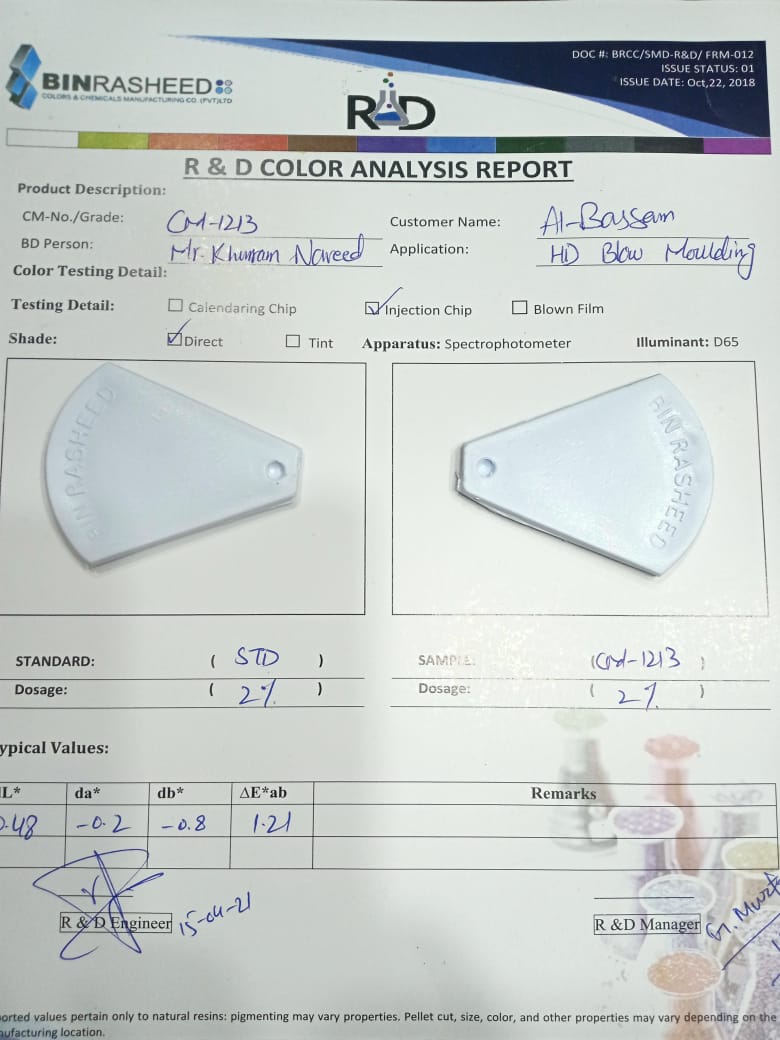 BINRASHEED
COLORS & CHEMICALS MANUFACTURING CO. (PVT)LTD
R&D
DOC #: BRCC/SMD-R&D/ FRM-012
ISSUE STATUS: 01
ISSUE DATE: Oct,22, 2018
R & D COLOR ANALYSIS REPORT
Product Description:
CM-No./Grade: CM-1213 Customer Name: Al-Bassam
BD Person: Mr. Khurram Naveed Application: HD Blow Moulding
Color Testing Detail:
Testing Detail: Calendaring Chip Injection Chip Blown Film
Shade: Direct Tint Apparatus: Spectrophotometer Illuminant: D65
BIN RASHEED
BIN RASHEED
STANDARD: ( STD ) SAMPLE: (CM-1213 )
Dosage: ( 2% ) Dosage: ( 2% )
ypical Values:
L* da* db* ΔE*ab Remarks
0.48 -0.2 -0.8 1.21
R & D Engineer 15-04-21 R &D Manager
orted values pertain only to natural resins: pigmenting may vary properties. Pellet cut, size, color, and other properties may vary depending on the
nufacturing location.